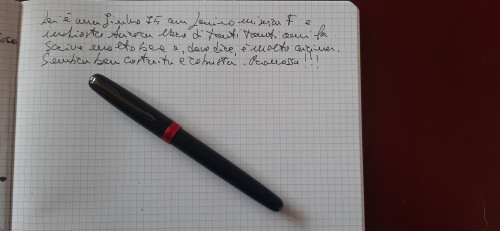 Lei è una Jinhao 75 con pennino misura F e
inchiostro Aurora blu di tanti tanti anni fa
Scrive molto bene e, devo dire, è molto carina.
Sembra ben costruita e robusta. Promossa!!!